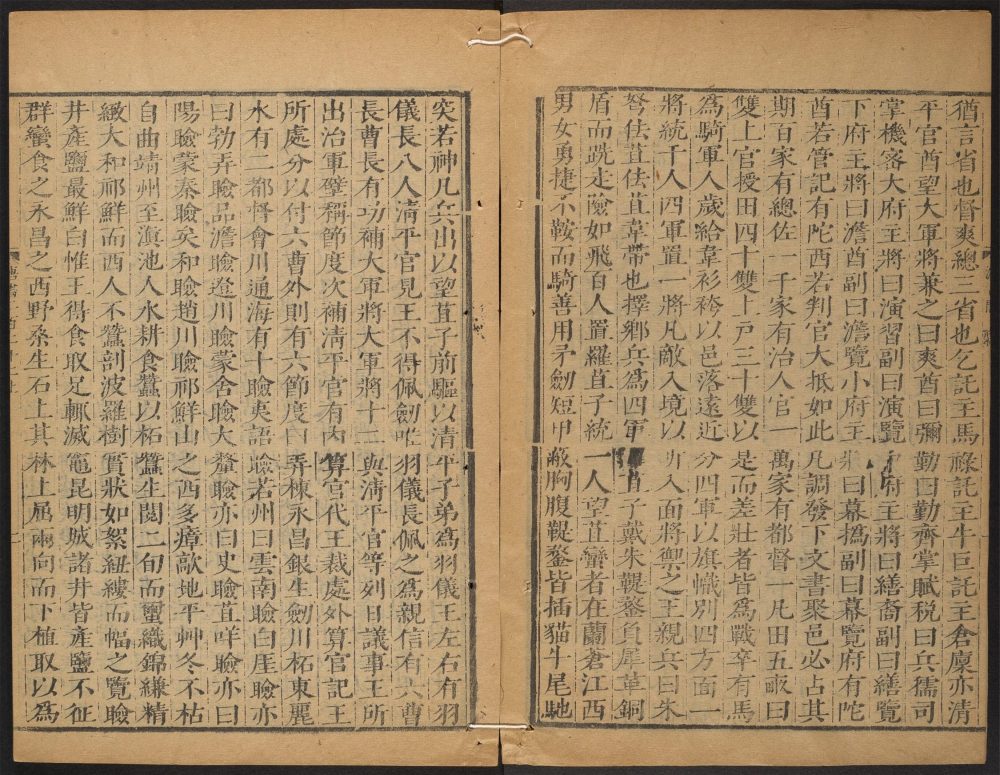 猶言省也督爽總三省也乞託主馬祿託主牛巨託主倉廩亦清
平官酋望大軍將兼之曰爽酋曰彌勤曰勤齊掌賦稅曰兵儒司
掌機密大府主將曰演習副曰演覽中府主將曰繕裔副曰繕覽
下府主將曰澹酋副曰澹覽小府主將曰幕撝副曰幕覽府有陀
酋若管記有陀西若判官大抵如此凡調發下文書聚邑必占其
期百家有總佐一千家有治人官一萬家有都督一凡田五畝曰
雙上官授田四十雙上戶三十雙以是而差壯者皆為戰卒有馬
為騎軍人歲給韋衫袴以邑落遠近分四軍以旗幟別四方面一
將統千人四軍置一將凡敵入境以所入面將禦之王親兵曰朱
弩佉苴佉苴韋帶也擇鄉兵為四軍苴子戴朱鞮鍪負犀革銅
盾而跣走險如飛百人置羅苴子統一人望苴蠻者在蘭倉江西
男女勇捷不鞍而騎善用矛劍短甲蔽胸腹鞮鍪皆插貓牛尾馳
突若神凡兵出以望苴子前驅以清平子弟為羽儀王左右有羽
儀長八人清平官見王不得佩劍唯羽儀長佩之為親信有六曹
長曹長有功補大軍將大軍將十二與清平官等列日議事王所
出治軍壁稱節度次補清平官有內算官代王裁處外算官記王
所處分以付六曹外則有六節度曰弄棟永昌銀生劍川柘東麗
水有二都督會川通海有十瞼夷語瞼若州曰雲南瞼白厓瞼亦
曰勃弄瞼品澹瞼邆川瞼蒙舍瞼大釐瞼亦曰史瞼苴咩瞼亦曰
陽瞼蒙秦瞼矣和瞼趙川瞼祁鮮山之西多瘴歊地平艸冬不枯
自曲靖州至滇池人水耕食蠶以柘蠶生閱二旬而蠒織錦縑精
緻大和祁鮮而西人不蠶剖波羅樹實狀如絮紐縷而幅之覽瞼
井產鹽最鮮白惟王得食取足輒滅竈昆明城諸井皆產鹽不征
群蠻食之永昌之西野桑生石上其林上屈兩向而下植取以為